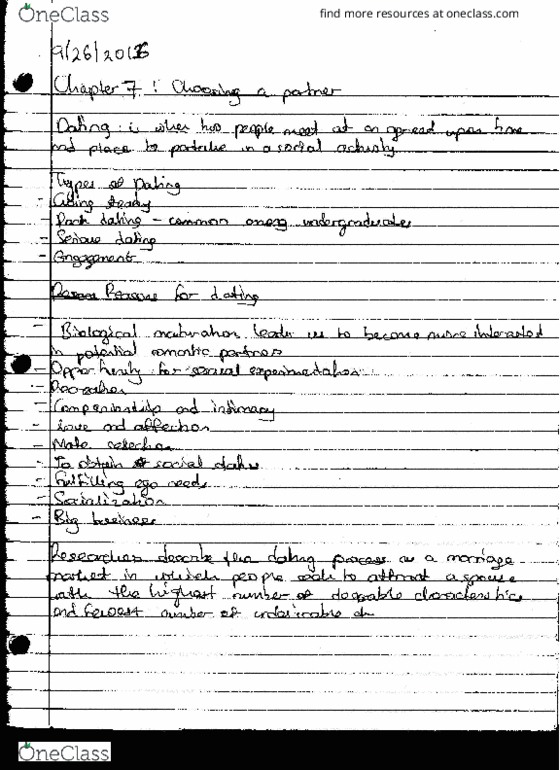 OneClass
find more resources at oneclass.com
9/26/2016
Chapter 7: Choosing a partner
Dating: is when two people meet at an agreed upon time
and place to partake in a social activity.
Types of Dating
- Going steady
- Pack dating - common among undergraduates
- Serious dating
- Engagement
Reasons for dating
- Biological maturation leads us to become more interested
in potential romantic partners
- Opportunity for sexual experimentation
- Recreation
- Companionship and intimacy
- Love and affection
- Mate selection
- To obtain social status
- Fulfilling ego needs
- Socialization
- Big business
Researches describe the dating process as a marriage
market in which people seek to attract a spouse
with the highest number of desirable characteristics
and fewest number of undesirable
OneClass